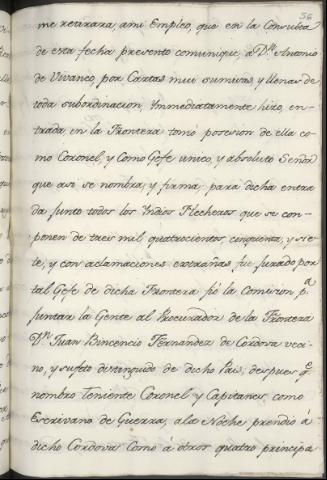 56
me retirara, ami Empleo, que en la Consulta
de esta fecha presento comunique, a Dn. Antonio
de Vivanco, por Cartas mui sumisas, y llenas de
toda subordinacion, Ynmediatamente hizo, en-
trada en la Frontera tomó posesion de ella co-
mo Coronel, y Como Gefe unico, y absoluto Señor
que asi se nombra, y firma, para dicha entra
da junto todos los Yndios Flecheros que se con-
ponen de tres mil quatrocientos cinquenta, y sie-
te, y con aclamaciones extrañas fue jurado por
tal Gefe de dicha Frontera pa
juntar la Gente al Procurador de la Frontera
Dn. Juan Bincencio Fernandez de Cordova veci-
no, y sujeto distinguido de dicho Pais; despues qe
nombro Teniente Coronel y Capitanes, como
Escrivano de Guerra, ala Noche prendió á
dicho Cordova Como á otros quatro principa